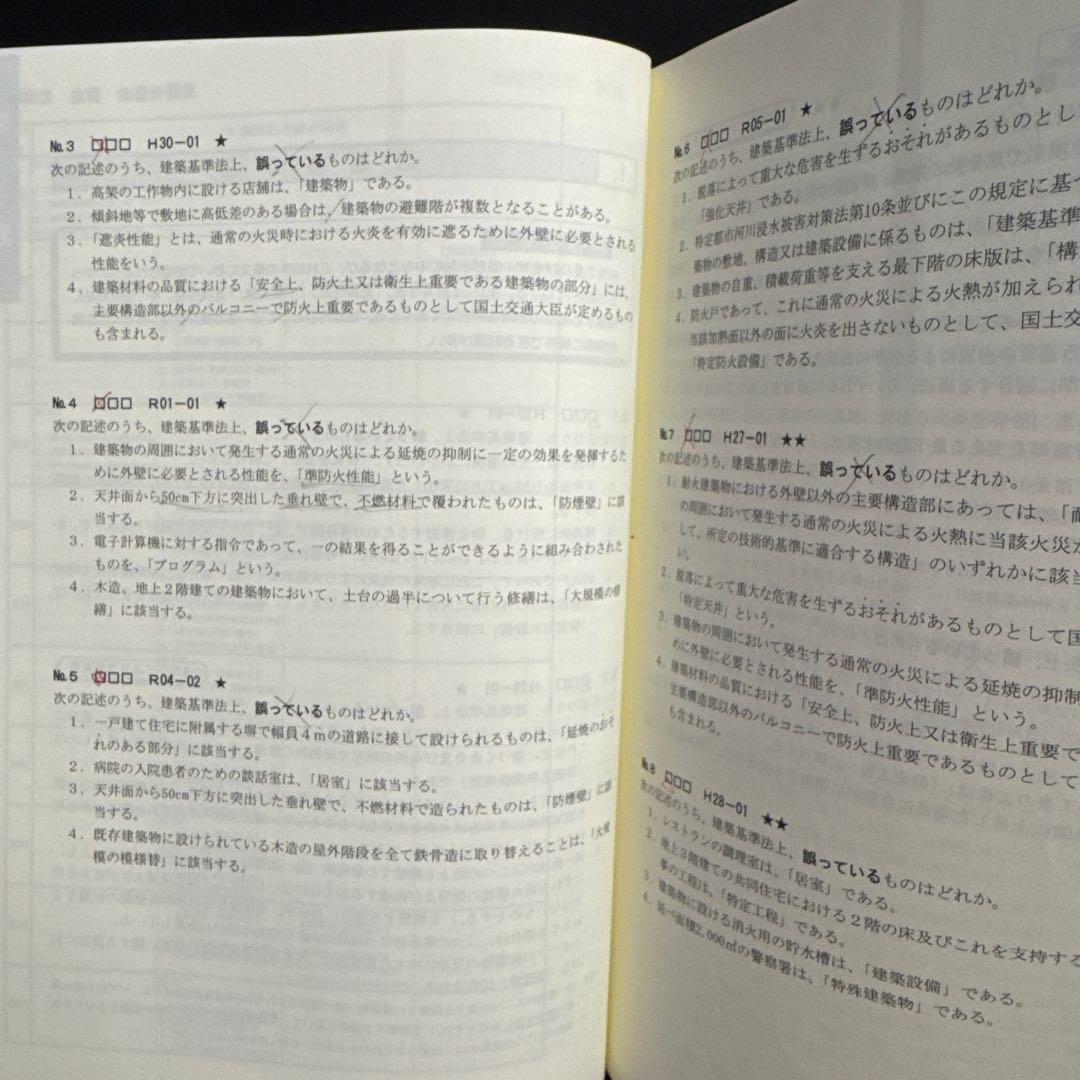 №3 □□□ H30−01 ★
次の記述のうち、建築基準法上、誤っているものはどれか。
1．高架の工作物内に設ける店舗は、「建築物」である。
2．傾斜地等で敷地に高低差のある場合は、建築物の避難階が複数となることがある。
3．「遮炎性能」とは、通常の火災時における火炎を有効に遮るために外壁に必要とされる
性能をいう。
4．建築材料の品質における「安全上、防火上又は衛生上重要である建築物の部分」には、
主要構造部以外のバルコニーで防火上重要であるものとして国土交通大臣が定めるもの
も含まれる。
№4 □□□ R01−01 ★
次の記述のうち、建築基準法上、誤っているものはどれか。
1．建築物の周囲において発生する通常の火災による延焼の抑制に一定の効果を発揮するた
めに外壁に必要とされる性能を、「準防火性能」という。
2．天井面から50cm下方に突出した垂れ壁で、不燃材料で覆われたものは、「防煙壁」に該
当する。
3．電子計算機に対する指令であって、一の結果を得ることができるように組み合わされた
ものを、「プログラム」という。
4．木造、地上2階建ての建築物において、土台の過半について行う修繕は、「大規模の修
繕」に該当する。
№5 □□□ R04−02 ★
次の記述のうち、建築基準法上、誤っているものはどれか。
1．一戸建て住宅に附属する塀で幅員4mの道路に接して設けられるものは、「延焼のおそ
れのある部分」に該当する。
2．病院の入院患者のための談話室は、「居室」に該当する。
3．天井面から50cm下方に突出した垂れ壁で、不燃材料で造られたものは、「防煙壁」に該
当する。
4．既存建築物に設けられている木造の屋外階段を全て鉄骨造に取り替えることは、「大規
模の模様替」に該当する。
№6 □□□ R05−01 ★
次の記述のうち、建築基準法上、誤っているものはどれか。
1．脱落によって重大な危害を生ずるおそれがあるものとし
「強化天井」である。
2．特定都市河川浸水被害対策法第10条並びにこの規定に基づ
築物の敷地、構造又は建築設備に係るものは、「建築基準
3．建築物の自重、積載荷重等を支える最下階の床版は、「構
4．防火戸であって、これに通常の火災による火熱が加えられ
当該加熱面以外の面に火炎を出さないものとして、国土交
「特定防火設備」である。
№7 □□□ H27−01 ★★
次の記述のうち、建築基準法上、誤っているものはどれか。
1．耐火建築物における外壁以外の主要構造部にあっては、「耐
の周囲において発生する通常の火災による火熱に当該火災が
して、所定の技術的基準に適合する構造」のいずれかに該当
い。
2．脱落によって重大な危害を生ずるおそれがあるものとして国
「特定天井」という。
3．建築物の周囲において発生する通常の火災による延焼の抑制
めに外壁に必要とされる性能を、「準防火性能」という。
4．建築材料の品質における「安全上、防火上又は衛生上重要で
主要構造部以外のバルコニーで防火上重要であるものとして
も含まれる。
№8 □□□ H28−01 ★★
次の記述のうち、建築基準法上、誤っているものはどれか。
1．レストランの調理室は、「居室」である。
2．地上3階建ての共同住宅における2階の床及びこれを支持する
事の工程は、「特定工程」である。
3．建築物に設ける消火用の貯水槽は、「建築設備」である。
4．延べ面積2,000㎡の警察署は、「特殊建築物」である。